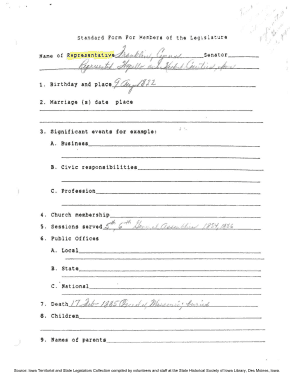 Standard Form For Members of the Legislature
Name of Representative Franklin, Cyrus Senator
Represented and Counties, Iowa
1. Birthday and place 9 1822
2. Marriage (s) date place
3. Significant events for example:
A. Business
B. Civic responsibilities
C. Profession
4. Church membership
5. Sessions served 5th, 6th General Assemblies 1854, 1856
6. Public Offices
A. Local
B. State
C. National
7. Death 17 Feb 1885
8. Children
9. Names of parents
Source: Iowa Territorial and State Legislators Collection compiled by volunteers and staff at the State Historical Society of Iowa Library, Des Moines, Iowa.